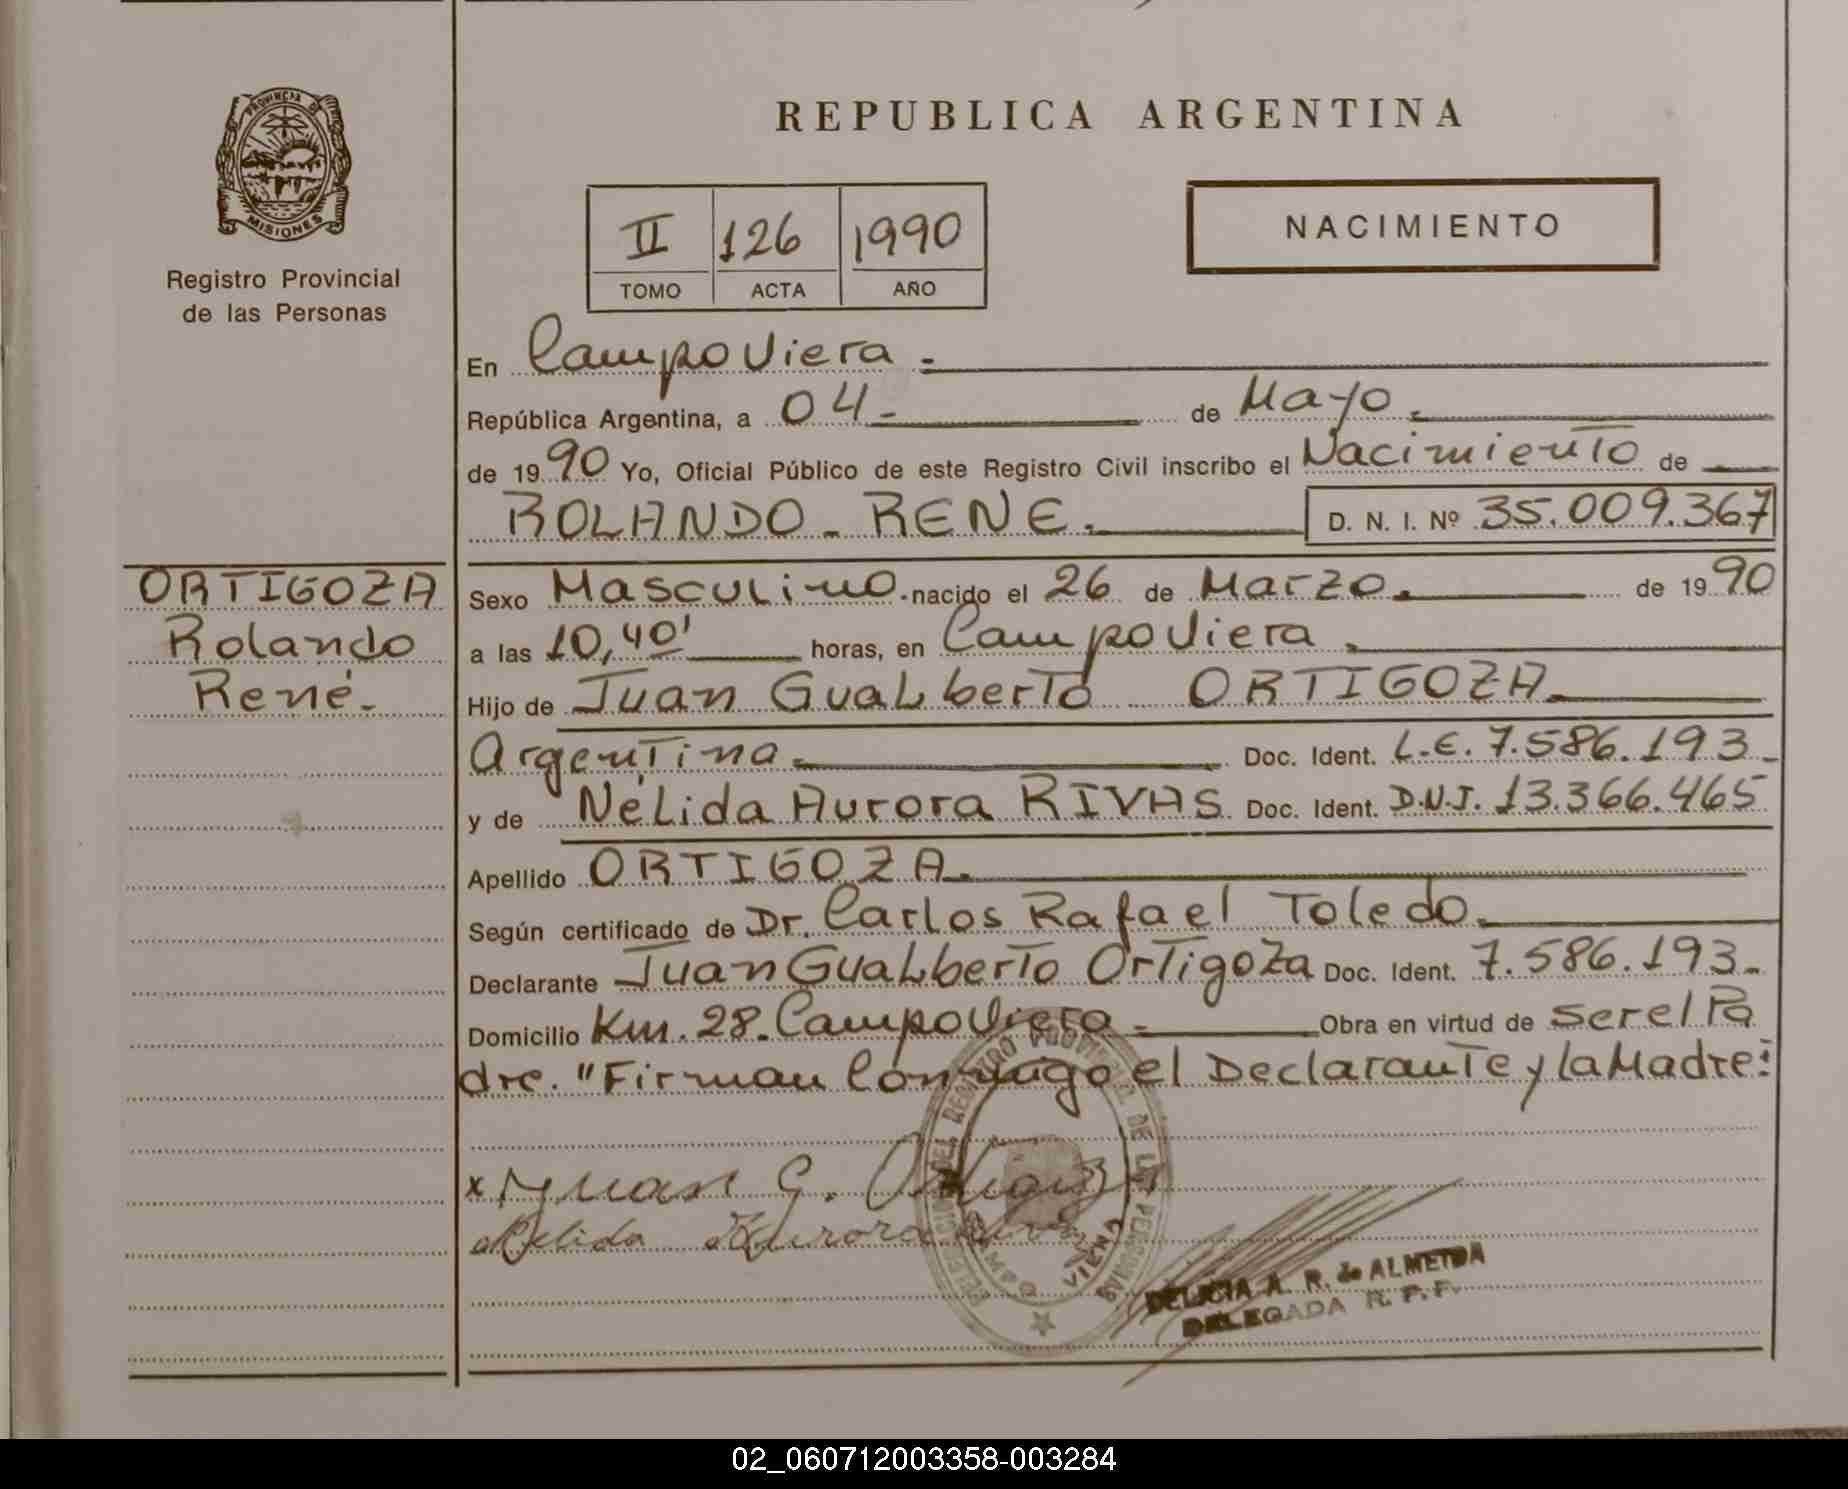 PROVINCIA DE
MISIONES
Registro Provincial
de las Personas
REPUBLICA ARGENTINA
II 126 1990
TOMO ACTA AÑO
NACIMIENTO
En Campo Viera.-
República Argentina, a 04- de Mayo.
de 1990 Yo, Oficial Público de este Registro Civil inscribo el Nacimiento de
ROLANDO - RENE. D. N. I. Nº 35.009.367
ORTIGOZA
Rolando
René.-
Sexo Masculino. nacido el 26 de Marzo. de 1990
a las 10,40' horas, en Campo Viera.
Hijo de Juan Gualberto ORTIGOZA.
Argentina. Doc. Ident. L.E. 7.586.193-
y de Nélida Aurora RIVAS. Doc. Ident. D.N.I. 13.366.465
Apellido ORTIGOZA.
Según certificado de Dr. Carlos Rafael Toledo.
Declarante Juan Gualberto Ortigoza Doc. Ident. 7.586.193-
Domicilio Km. 28. Campo Viera.- Obra en virtud de ser el Pa
dre. "Firman Conmigo el Declarante y la Madre:
x Juan G. Ortigoza
Nelida Aurora Rivas
DELICIA A. R. de ALMEIDA
DELEGADA R. P. P.
02_060712003358-003284